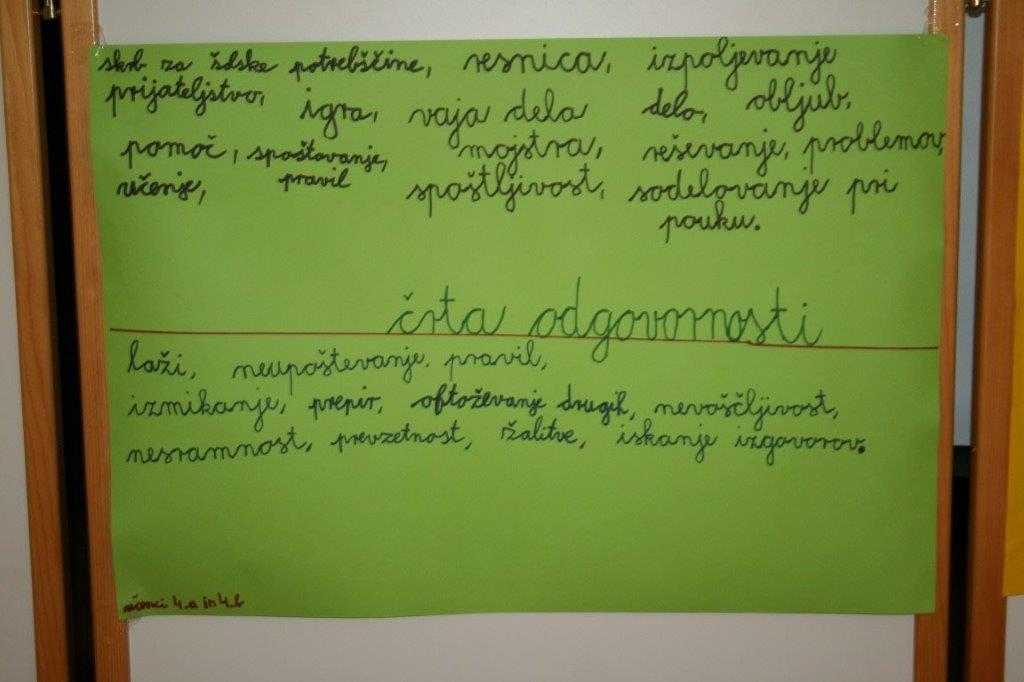 skrb za šolske potrebščine, resnica, izpoljevanje
prijateljstvo, igra, vaja dela delo, obljub,
pomoč, spoštovanje, mojstra, reševanje, problemov,
učenje, pravil spoštljivost, sodelovanje pri
pouku.
črta odgovornosti
laži, neupoštevanje. pravil,
izmikanje, prepir, obtoževanje drugih, nevoščljivost,
nesramnost, prevzetnost, žalitve, iskanje izgovorov.
učenci 4.a in 4.b